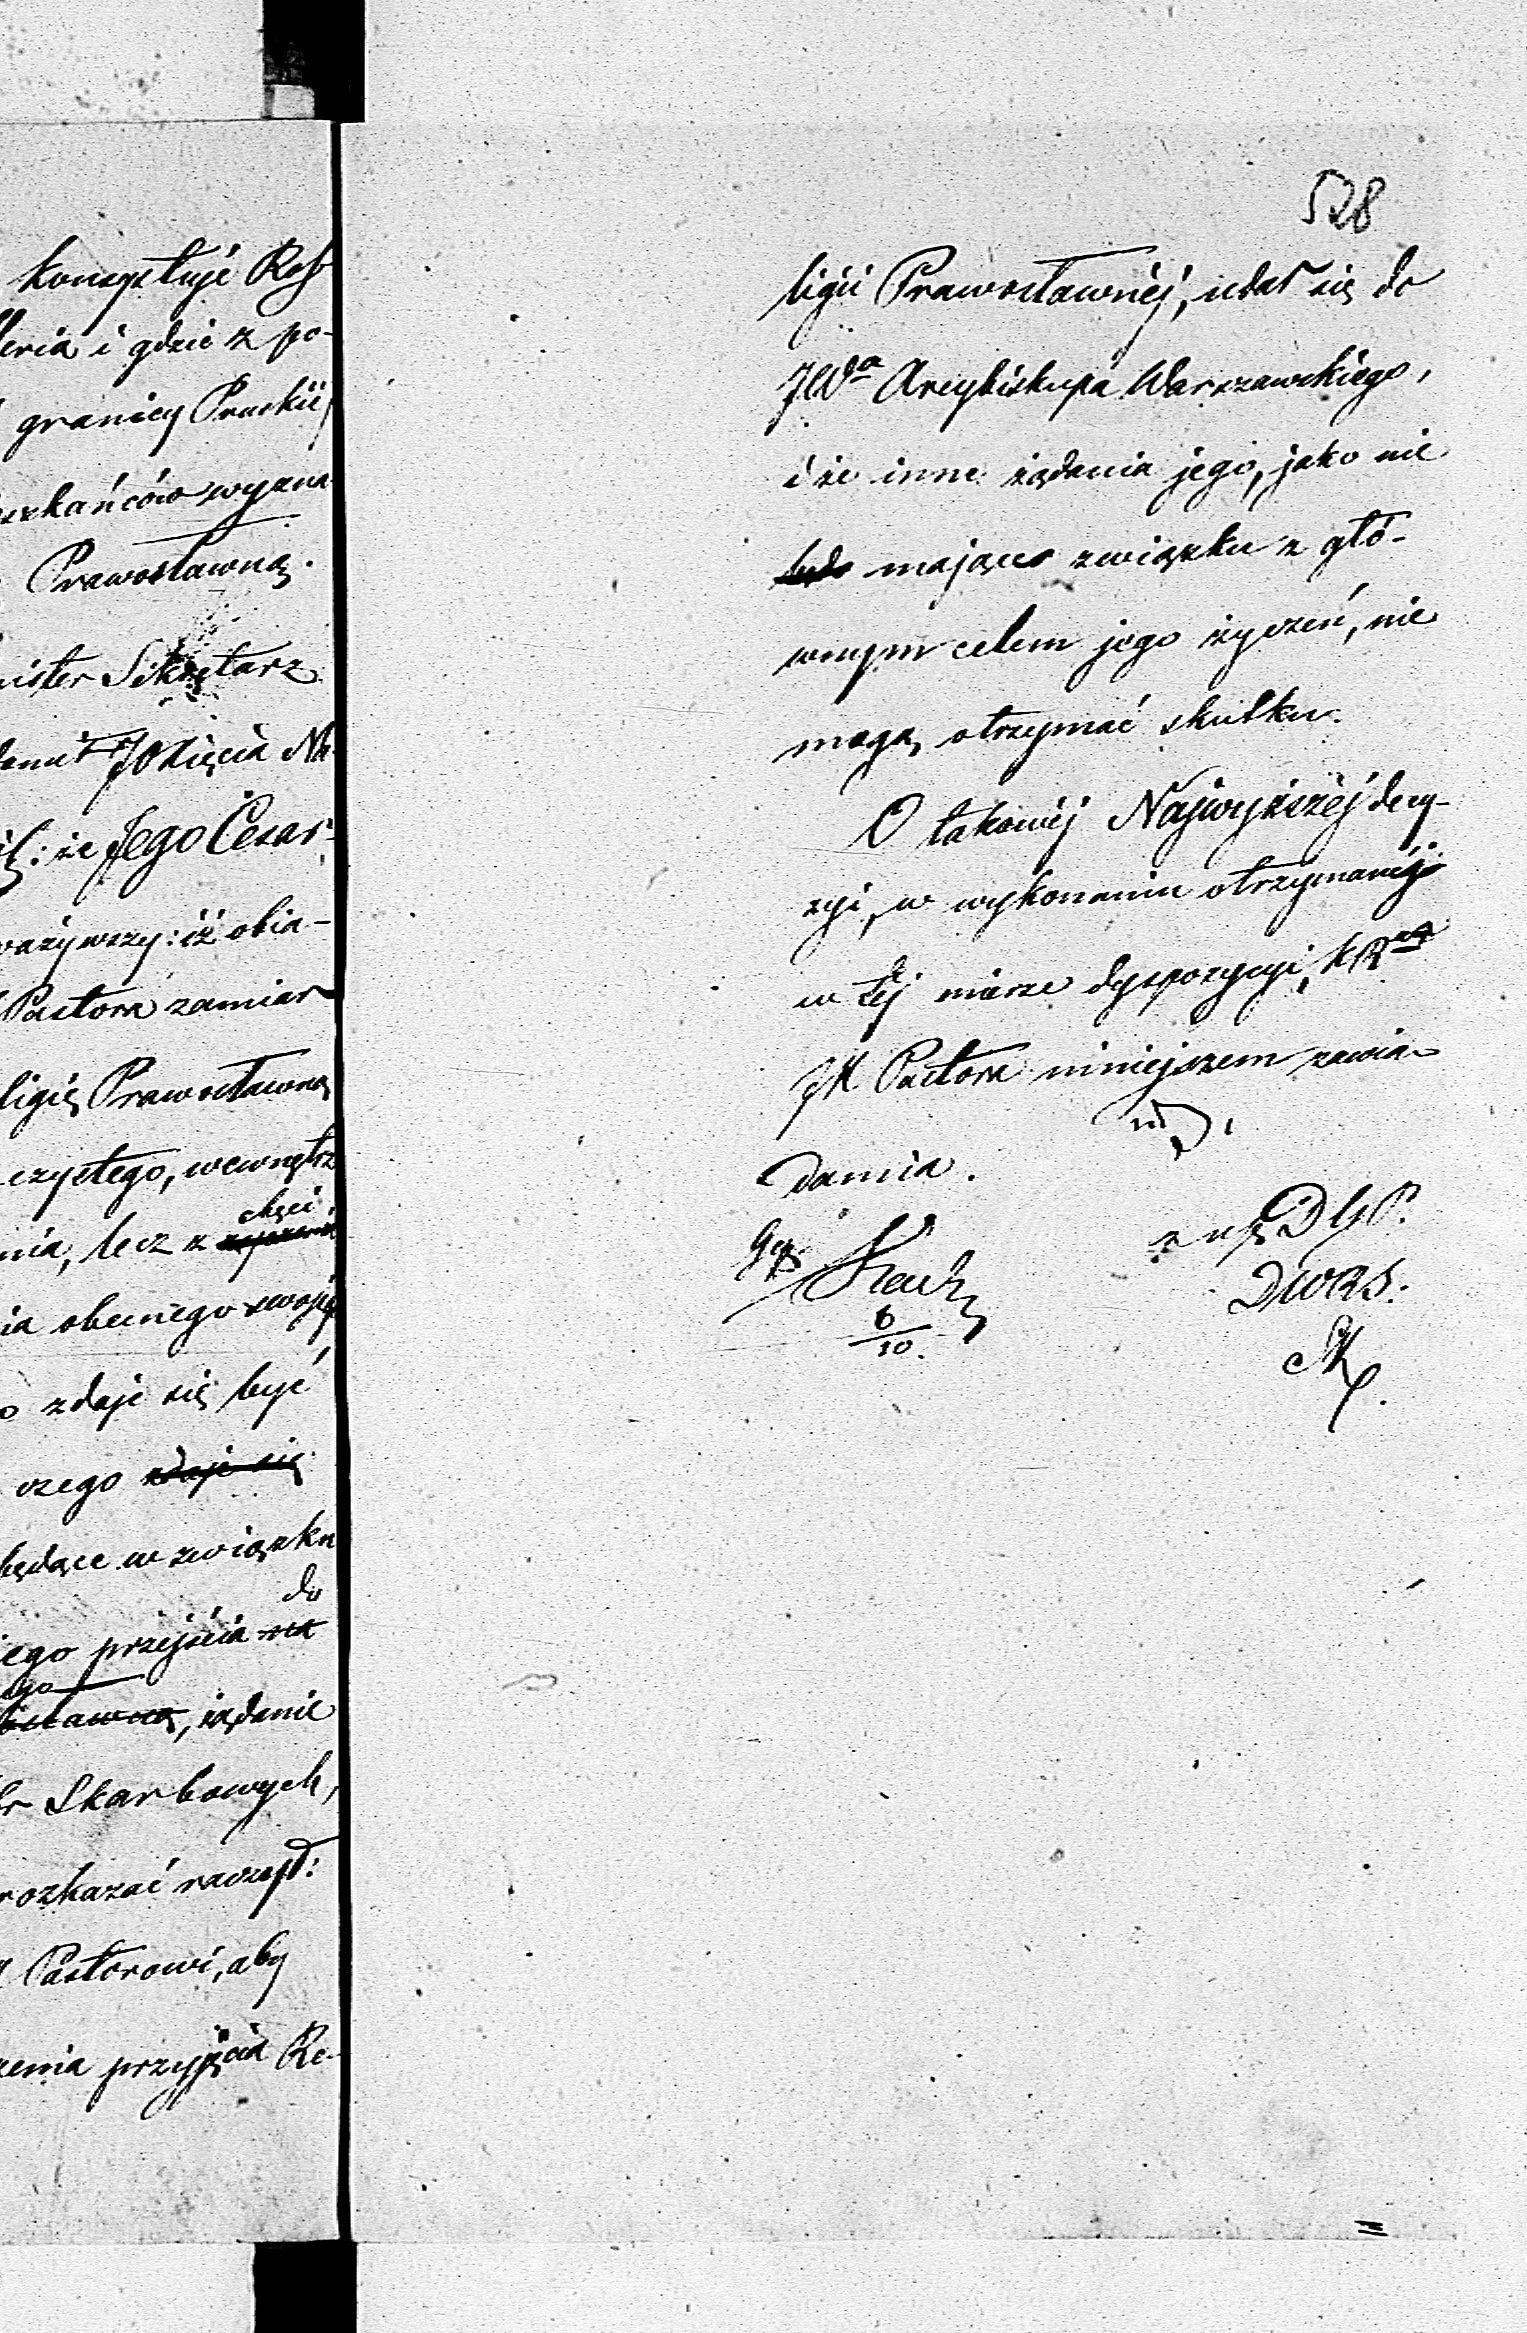 konsystuje
leria i gdzie z po-
granicy Pruskiej
szkańców wyzna
Prawosławną.
nister Sekretarz
JO Xięcia Na
że Jego Cesar-
ważywszy: iż obia-
Pastora zamiar
ligię Prawosławną
czystego, wewnętrz
chęci
nia, lecz z życzenia
ia obecnego swojej
o zdaje się być
czego zdaje się
będące w związku
do
iego przejścia na
go
sławną, żądanie
r Skarbowych,
rozkazać raczył:
Pastorowi, aby
zenia przyjęcia Re-
528
ligii Prawosławnéj, udał się do
JWa Arcybiskupa Warszawskiego,
i że inne żądania jego, jako nie
będą mające związku z głó-
wnym celem jego życzeń, nie
mogą otrzymać skutku.
O takowéj Najwyższéj decy-
zyi, w wykonaniu otrzymanéj
w téj mierze dyspozycyi, KR
JX Pastora niniejszem zawia-
damia.
z up. DGP.
DWRS.
6/10.